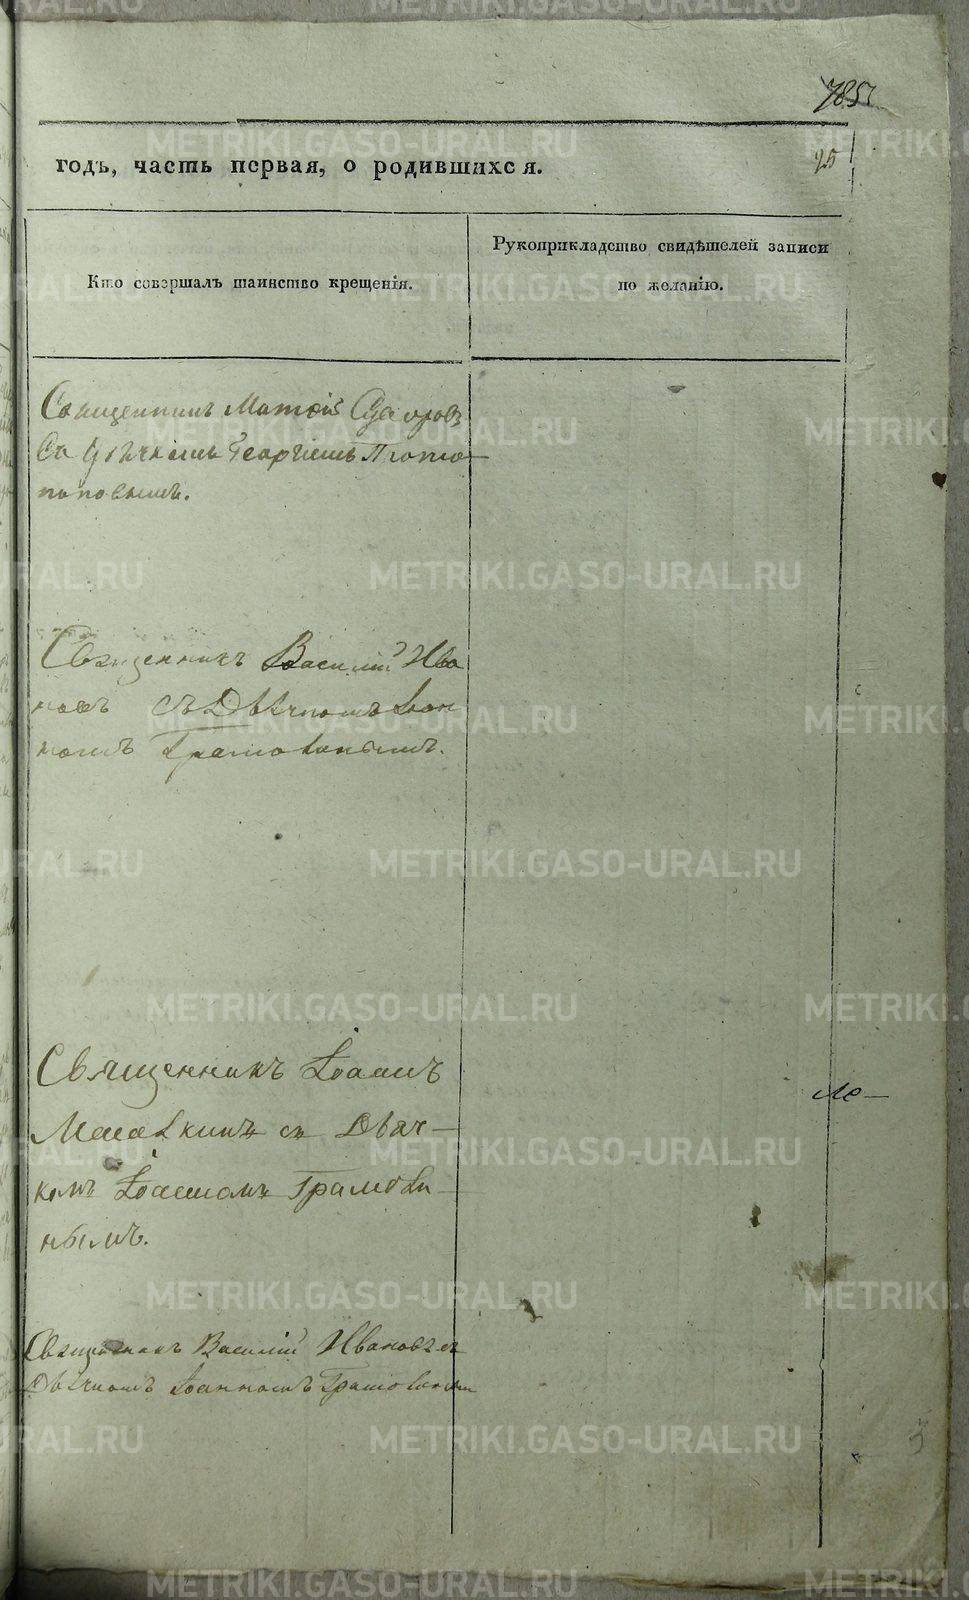 785
25
годъ, часть первая, о родившихся.
Кто совершалъ таинство крещенія.
Рукоприкладство свидѣтелей записи
по желанію.
Священникъ Матѳій
Съ Георгіемъ Прото-
поповымъ.
Священникъ Василій Ива
новъ съ Дьячкомъ Іоан
номъ Грамолинымъ.
Священникъ Іоаннъ
съ Дьяч-
комъ Іоанномъ Грамоли-
нымъ.
Священникъ Василій Ивановъ съ
Дьячкомъ Іоанномъ Грамолинымъ
METRIKI.GASO-URAL.RU